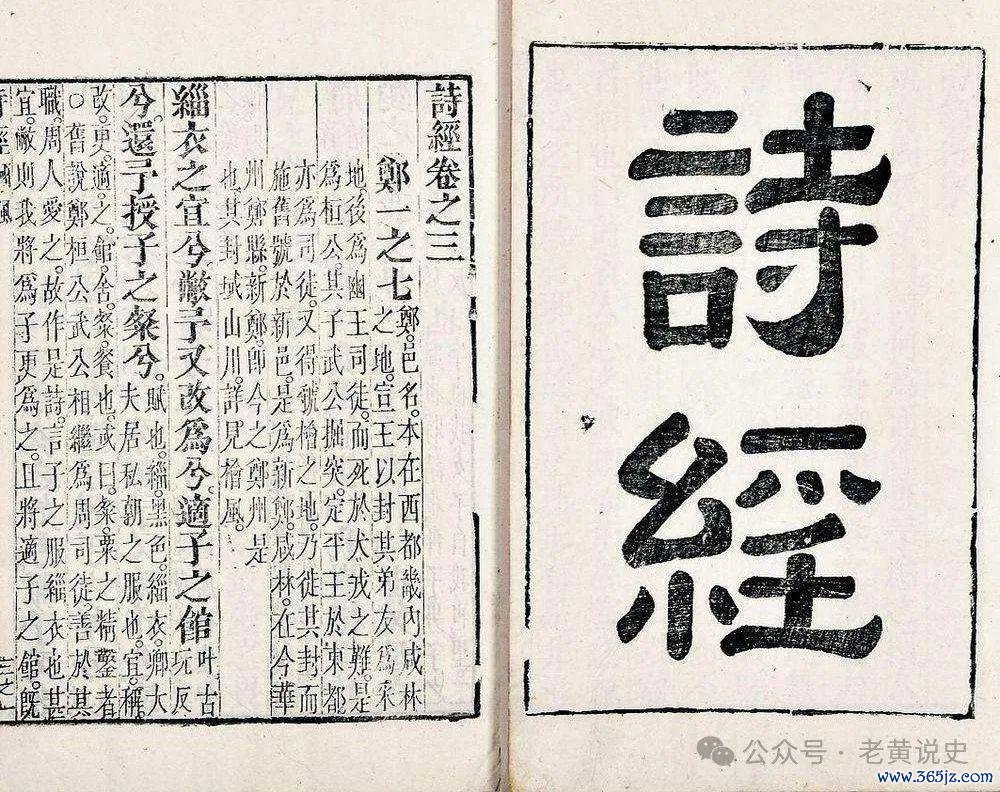 詩
經
詩經卷之三
鄭一之七 鄭。邑名。本在西都畿內咸林
之地。宣王以封其弟友爲采
地後爲幽王司徒。而死於犬戎之難。是
爲桓公。其子武公掘突。定平王於東都
亦爲司徒。又得虢檜之地。乃徙其封而
施舊號於新邑。是爲新鄭。咸林。在今華
州鄭縣。新鄭。卽今之鄭州是
也其封域山川。詳見檜風。
緇衣之宜兮敝予又改爲兮。適子之館 叶古
玩反
兮。還予授子之粲兮。賦也。緇。黑色。緇衣。卿大
夫居私朝之服也。宜。稱。
改。更。適。之。館。舍。粲。餐也。或曰。粲。粟之精鑿者
○舊說鄭桓公武公相繼爲周司徒。善於其
職。周人愛之。故作是詩。言子之服緇衣也甚
宜。敝則我將爲子更爲之。且將適子之館。旣
公众号·老黄说史
www.365jz.com